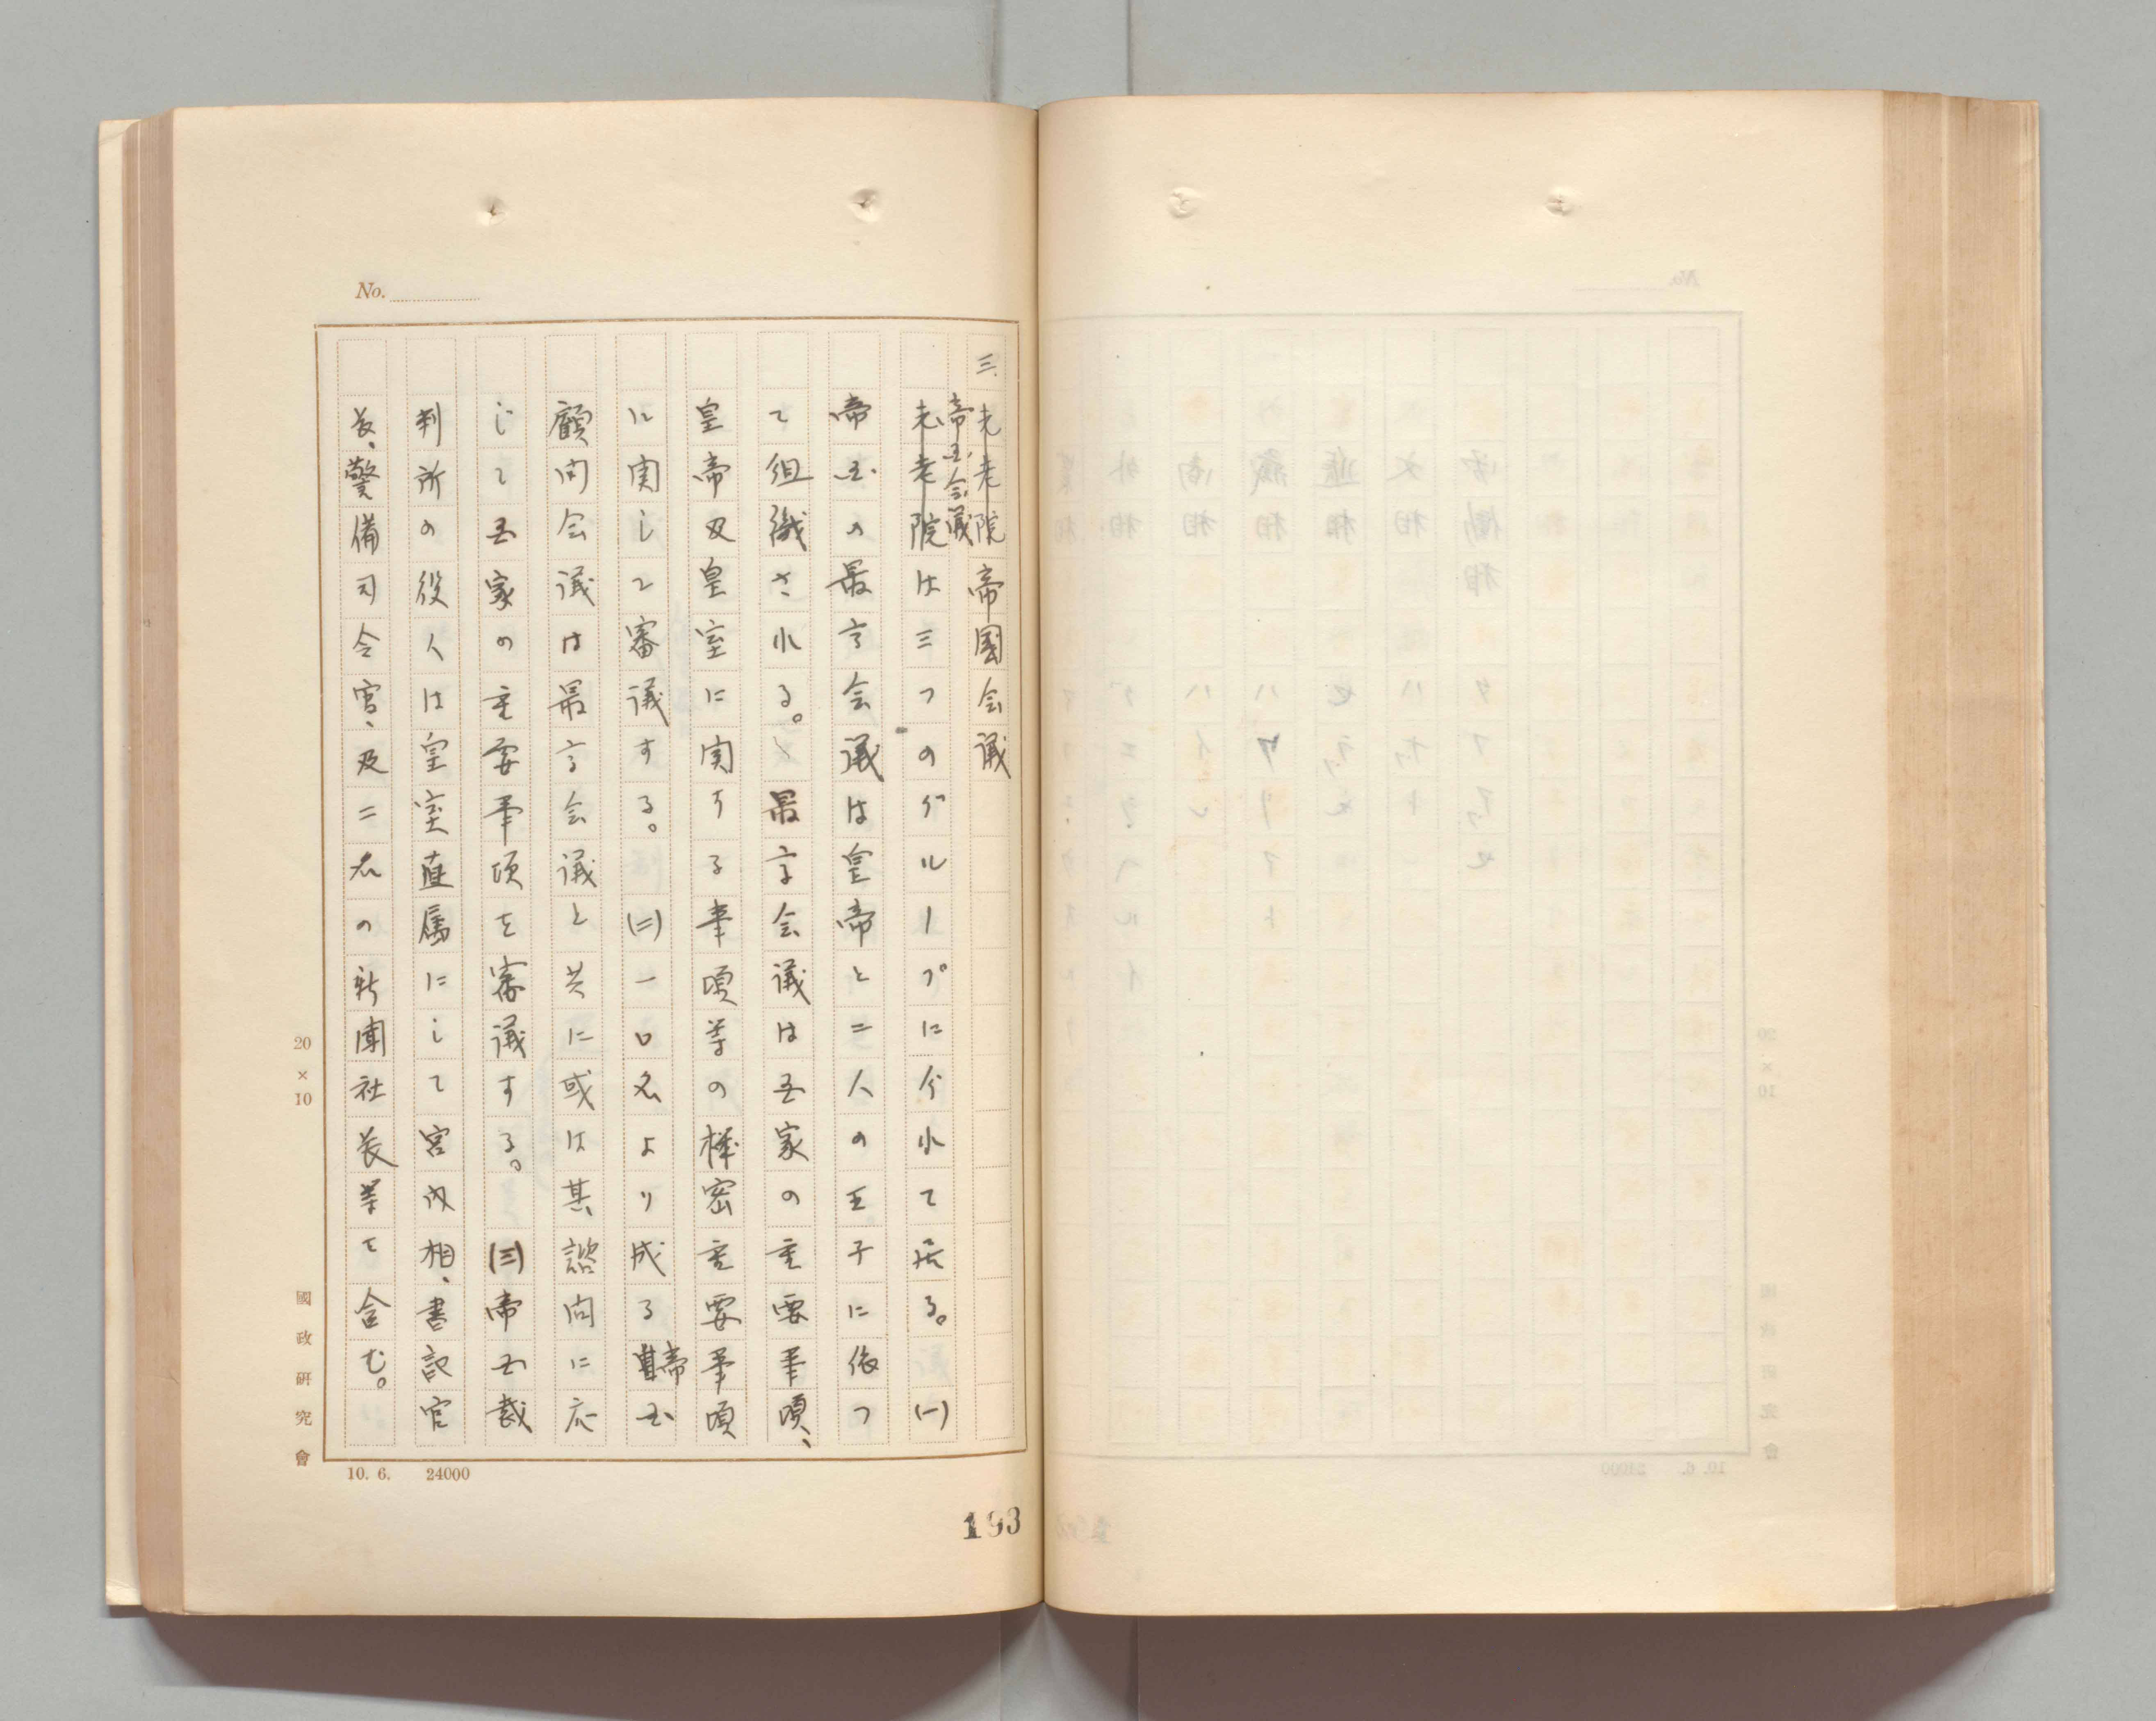 No.
三、元老院帝國会議
帝国会議
元老院は三つのグループに分れて居る。(一)
帝国の最高会議は皇帝と二人の王子に依つ
て組織される。最高会議は国家の重要事項、
皇帝及皇室に関する事項等の機密重要事項
に関して審議する。(二)一〇名より成る帝国
顧問会議は最高会議と共に或は其諮問に応
じて国家の重要事項を審議する。(三)帝国裁
判所の役人は皇室直属にして宮内相、書記官
長、警備司令官、及二名の新聞社長等を含む。
20×10
國政研究會
10. 6. 24000
193